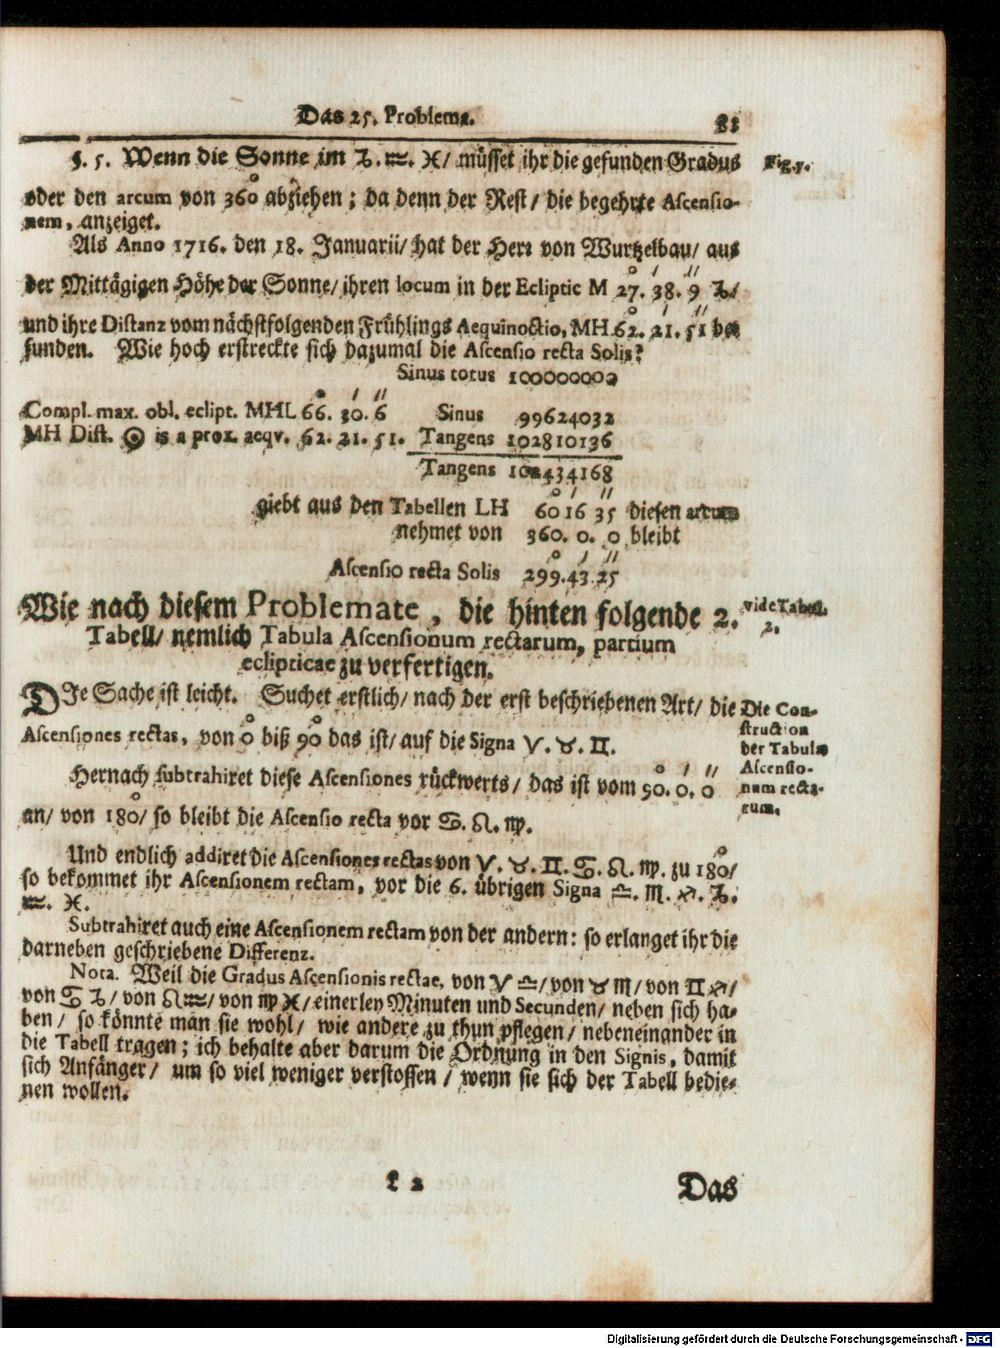 Das 25. Problema.
83
§. 5. Wenn die Sonne im ♑. ♒. ♓/ müsset ihr die gefunden Gradus
Fig. 5.
oder den arcum von 360° abziehen; da denn der Rest/ die begehrte Ascensio-
nem, anzeiget.
Als Anno 1716. den 18. Januarii/ hat der Herr von Wurtzelbau/ aus
der Mittägigen Höhe der Sonne/ ihren locum in der Ecliptic M 27°. 38′. 9″ ♑/
und ihre Distanz vom nächstfolgenden Frühlings Aequinoctio, MH 62°. 21′. 51″ be
funden. Wie hoch erstreckte sich dazumal die Ascensio recta Solis?
Sinus totus 100000000
Compl. max. obl. eclipt. MHL 66°. 30′. 6″ Sinus 99624032
MH Dist. ☉ is a prox. aeqv. 62. 21. 51. Tangens 102810136
Tangens 102434168
giebt aus den Tabellen LH 60° 16′ 35″ diesen arcum
nehmet von 360. 0. 0 bleibt
Ascensio recta Solis 299°. 43′. 25″
Wie nach diesem Problemate, die hinten folgende 2.
vide Tabell. 2.
Tabell/ nemlich Tabula Ascensionum rectarum, partium
eclipticae zu verfertigen.
DIe Sache ist leicht. Suchet erstlich/ nach der erst beschriebenen Art/ die
Die Con-
struction
der Tabulae
Ascensio-
num recta-
rum.
Ascensiones rectas, von 0° biß 90° das ist/ auf die Signa ♈. ♉. ♊.
Hernach subtrahiret diese Ascensiones rückwerts/ das ist vom 90°. 0′. 0″
an/ von 180°/ so bleibt die Ascensio recta vor ♋. ♌. ♍.
Und endlich addiret die Ascensiones rectas von ♈. ♉. ♊. ♋. ♌. ♍. zu 180°/
so bekommet ihr Ascensionem rectam, vor die 6. übrigen Signa ♎. ♏. ♐. ♑.
♒. ♓.
Subtrahiret auch eine Ascensionem rectam von der andern: so erlanget ihr die
darneben geschriebene Differenz.
Nota. Weil die Gradus Ascensionis rectae, von ♈ ♎/ von ♉ ♏/ von ♊ ♐/
von ♋ ♑/ von ♌ ♒/ von ♍ ♓/ einerley Minuten und Secunden/ neben sich ha-
ben/ so könnte man sie wohl/ wie andere zu thun pflegen/ nebeneinander in
die Tabell tragen; ich behalte aber darum die Ordnung in den Signis, damit
sich Anfänger/ um so viel weniger verstossen/ wenn sie sich der Tabell bedie-
nen wollen.
L 2
Das
Digitalisierung gefördert durch die Deutsche Forschungsgemeinschaft - DFG